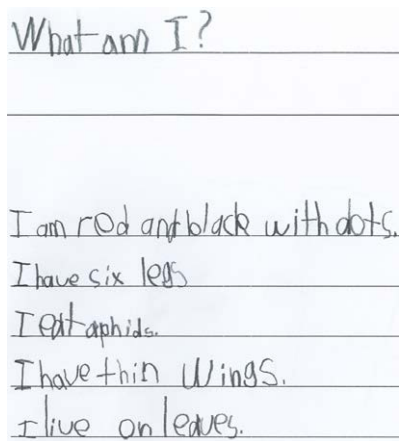 What am I?
I am red and black with dots.
I have six legs
I eat aphids.
I have thin wings.
I live on leaves.